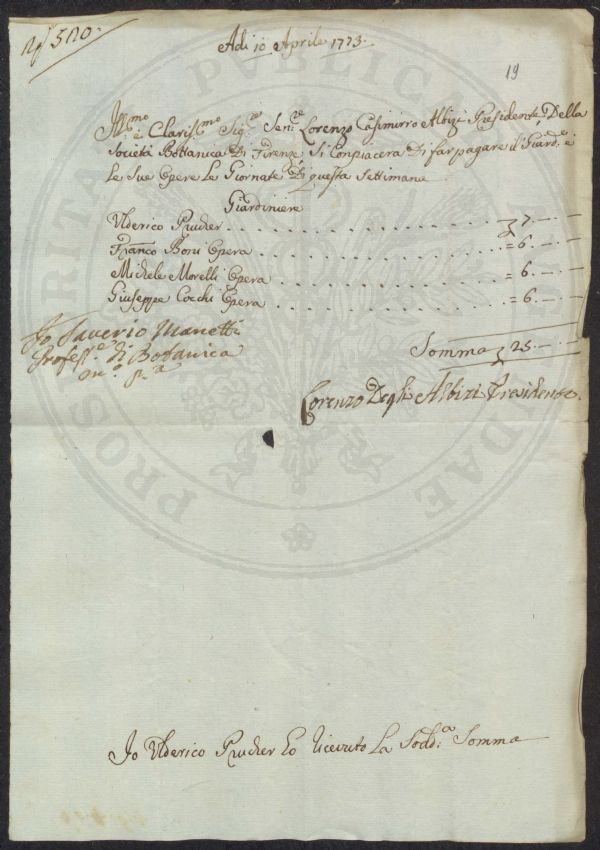 N° 520.
Adi 10 Aprile 1773.
19
Ill.mo
e Claris.mo Sig.re Sen.re Lorenzo Casimirro Albizi Presidente Della
Società Bottanica Di Firenze, Si Conpiacera Di far pagare il Giard.e e
le Sue Opere Le Giornate Di questa Settimana
Giardiniere
Ulderico Prucher . . . . . . . . . . . 7.—.—
Franco Boni Opera . . . . . . . . . . . = 6.—.—
Michele Morelli Opera . . . . . . . . . . . = 6.—.—
Giuseppe Cocchi Opera . . . . . . . . . . . = 6.—.—
Io Saverio Manetti
Profess.e di Botanica
m.o p.a
Somma 25.—.—
Lorenzo Degli Albizi Presidente.
Io Ulderico Prucher Ho Riceuto La Sodd.a Somma
PUBLICA
PROSPERITATI